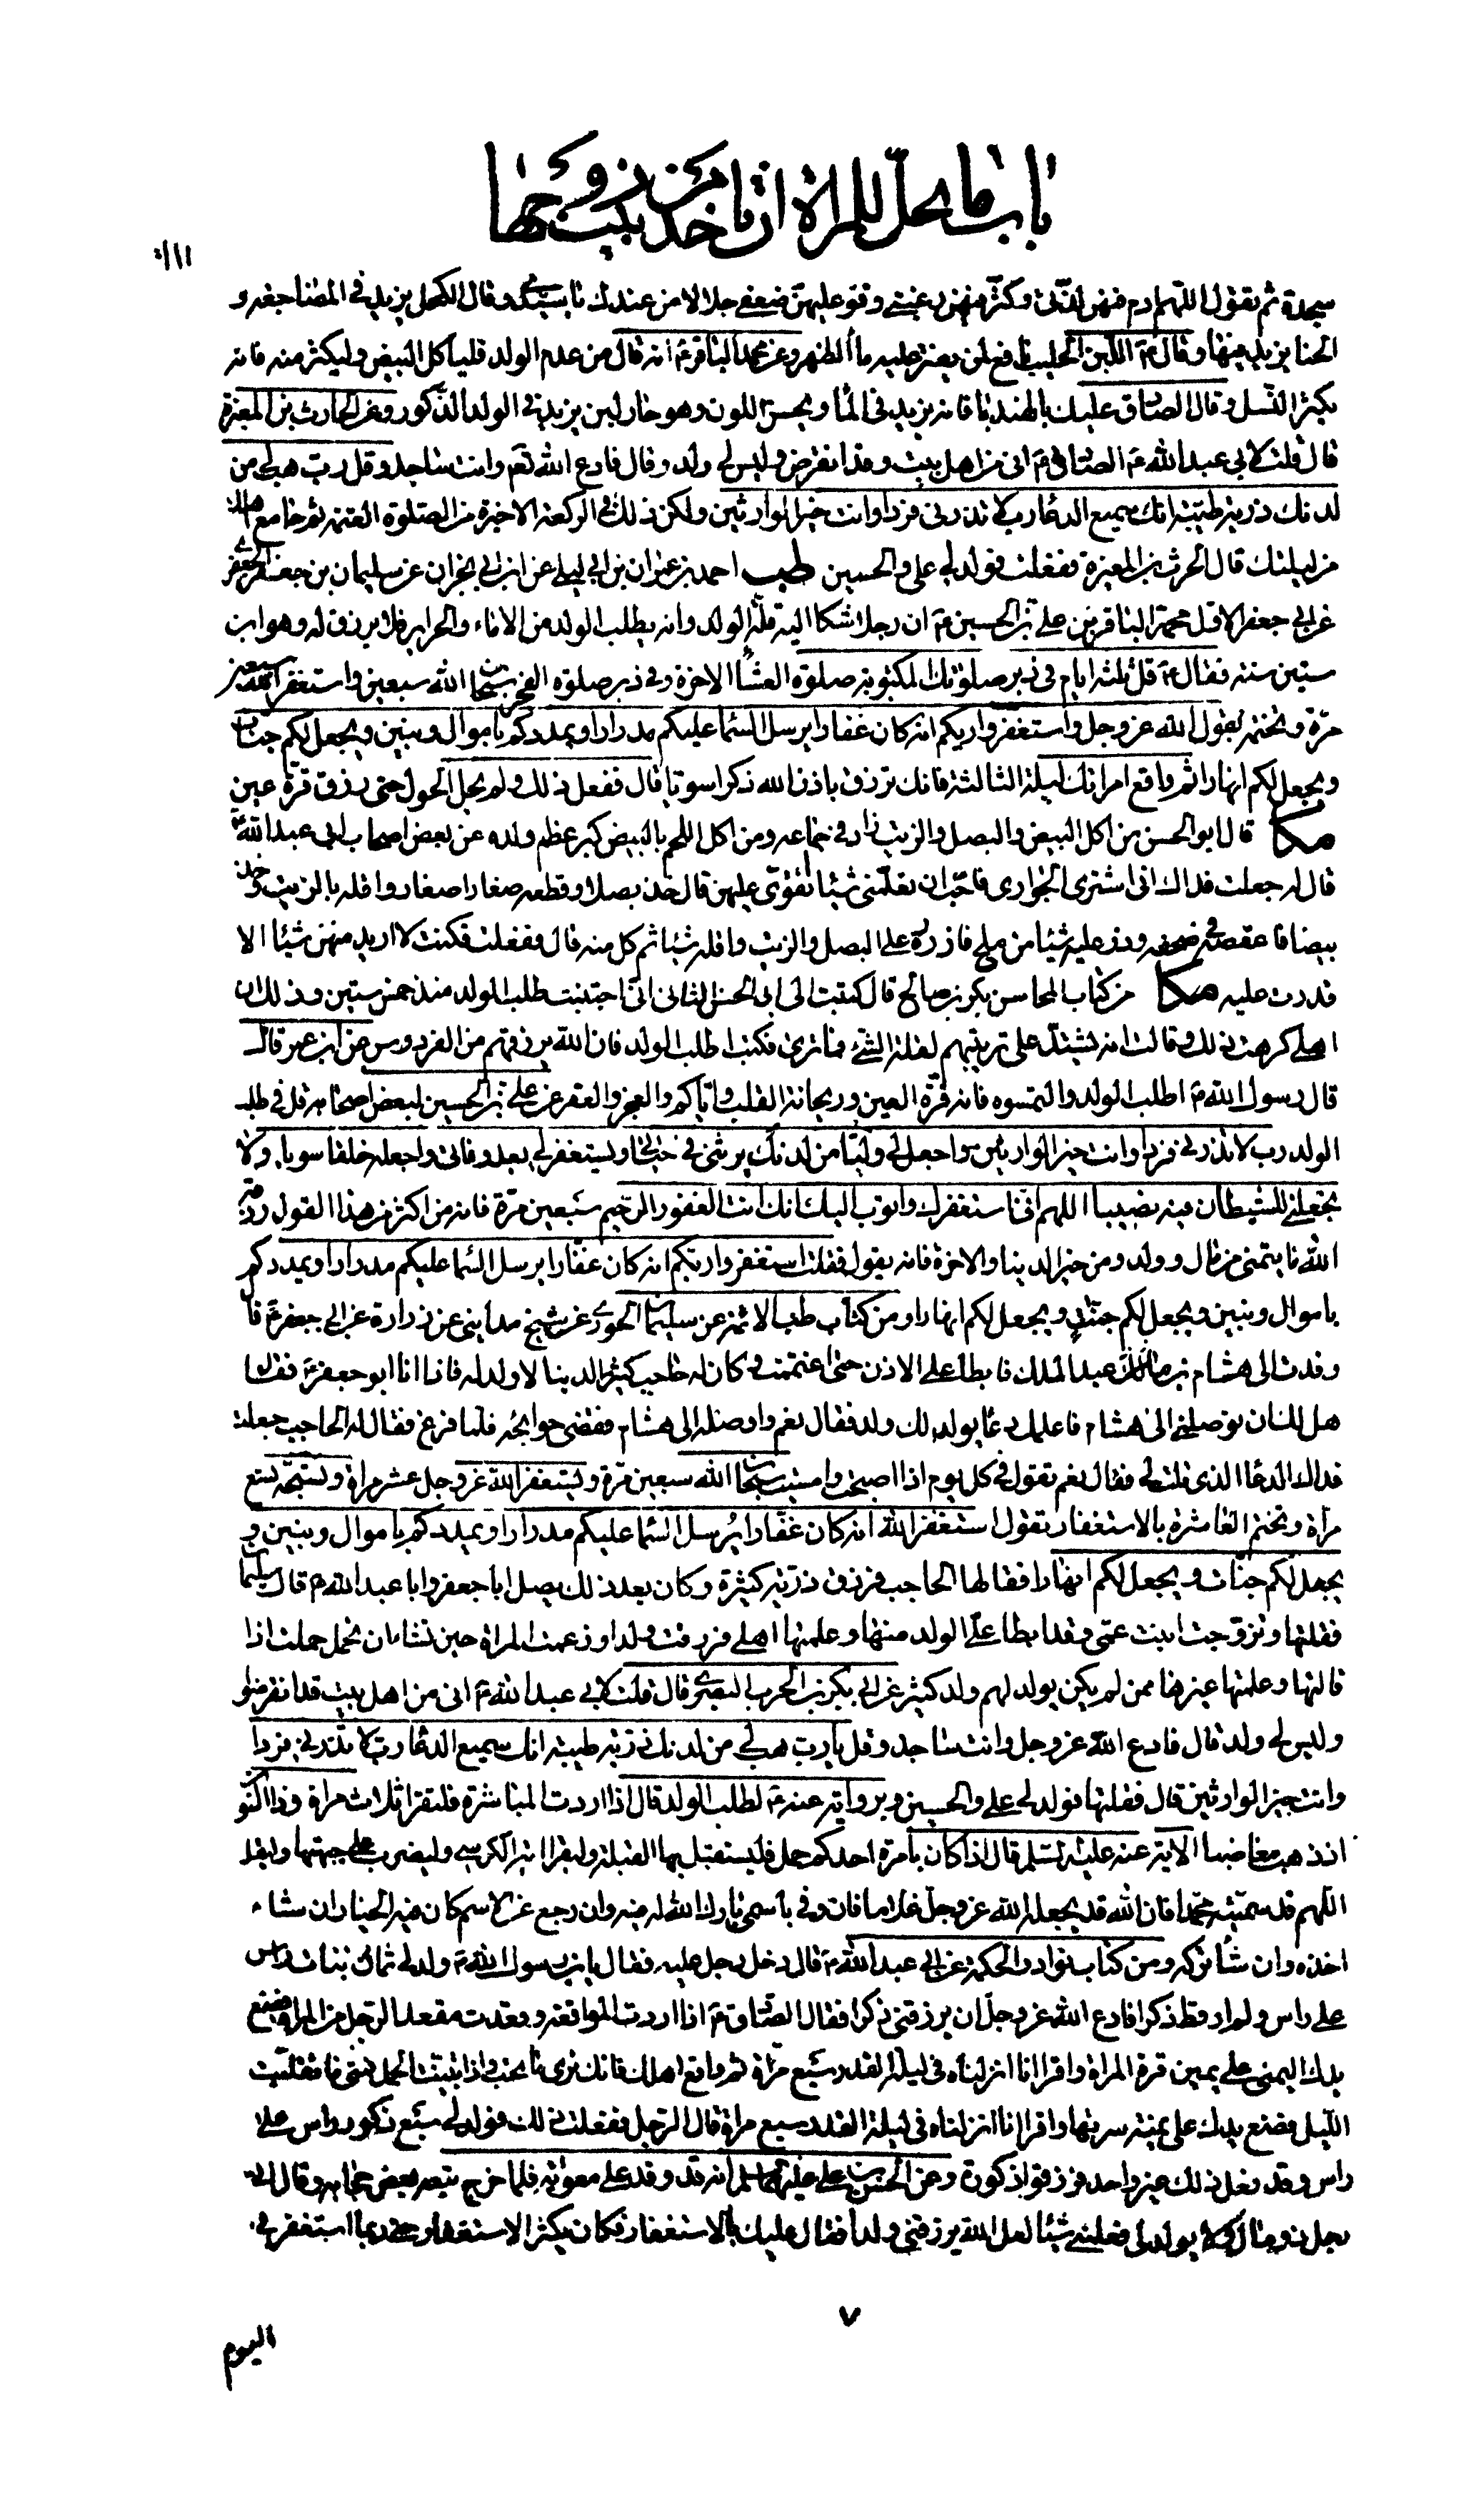 باب ما يحل للمراة ان تاخذ من بيت زوجها
سجدة ثم تقول اللهم ادم فيهن لذتى وكثر فيهن رغبتى وقو عليهن ضعفى حلالا من عندك يا سيدى وقال الكحل يزيد فى المضاجعه و
الحنا يزيد فيها وقال ع اللبن الحليب نافع لمن يعتر عليه ماء الظهر وعن محمد الباقر ع انه قال من عدم الولد فلياكل البيض وليكثر منه فانه
يكثر النسل وقال الصادق عليك بالهندبا فانه يزيد فى الما ويحسن اللون وهو حار لين يزيد فى الولد الذكور وعن الحارث بن المغيرة
قال قلت لابى عبد الله ع الصادق ع انى من اهل بيت وقد انقرض وليس لى ولد وقال فادع الله تع وانت ساجد وقل رب هب لى من
لدنك ذرية طيبة انك سميع الدعا رب لا تذرنى فردا وانت خير الوارثين ولكن ذلك فى الركعة الاخيرة من الصلوة العتمه ثم جامع اهلك
من ليلتك قال الحرث بن المغيرة ففعلت فولد لى على والحسين طب احمد بن عمران بن ابى ليلى عن ابن ابى نجران عن سليمان بن جعفر الجعفرى
عن ابى جعفر الاول محمد الباقر بن على بن الحسين ع ان رجلا شكا اليه قلة الولد وانه يطلب الولد من الاماء والحراير فلا يرزق له وهو ابن
ستين سنة فقال ع قل ثلثة ايام فى دبر صلوتك المكتوبة صلوة العشا الاخرة وفى دبر صلوة الفجر سبحان الله سبعين واستغفر الله سبعين
مرة وتختمه بقول الله عز وجل واستغفروا ربكم انه كان غفارا يرسل السما عليكم مدرارا ويمددكم باموال وبنين ويجعل لكم جنات
ويجعل لكم انهارا ثم واقع امراتك ليلة الثالثة فانك ترزق باذن الله ذكرا سويا قال ففعل ذلك ولم يحل الحول حتى رزق قرة عين
مكا قال ابو الحسن من اكل البيض والبصل والزيت زاد فى جماعه ومن اكل اللحم بالبيض كبر عظم ولده عن بعض اصحاب ابى عبد الله ع
قال له جعلت فداك انى اشترى الجوارى فاحب ان تعلمنى شيئا اتقوى عليهن قال خذ بصلا وقطعه صغارا صغارا واقله بالزيت وخذ
بيضا فافقصه فى صحفه وذر عليه شيئا من ملح فاذرره على البصل والزيت واقله شيئا ثم كل منه قال ففعلت فكنت لا اريد منهن شيئا الا
قدرت عليه مكا من كتاب المحاسن بكر بن صالح قال كتبت الى ابى الحسن الثانى انى اجتنبت طلب الولد منذ خمس سنين وذلك ان
اهلى كرهت ذلك وقالت انه يشتد على تربيتهم لقلة الشئ فما ترى فكتب اطلب الولد فان الله يرزقهم من الفردوس عن ابن عمر قال
قال رسول الله ص اطلب الولد والتمسوه فانه قرة العين وريحانة القلب واياكم والعجز والعقر عن على بن الحسين لبعض اصحابه قل فى طلب
الولد رب لا تذرنى فردا وانت خير الوارثين واجعل لى وليا من لدنك يرثنى فى حياتى ويستغفر لى بعد وفاتى واجعله خلقا سويا ولا
تجعل للشيطان فيه نصيبا اللهم انى استغفرك واتوب اليك انك انت الغفور الرحيم سبعين مرة فانه من اكثر من هذا القول رزقه
الله ما يتمنى من مال وولد ومن خير الدنيا والاخرة فانه يقول فقلت استغفروا ربكم انه كان غفارا يرسل السما عليكم مدرارا ويمددكم
باموال وبنين ويجعل لكم جنات ويجعل لكم انهارا ومن كتاب طب الائمة عن سليمان الخورى عن شيخ مداينى عن زرارة عن ابى جعفر ع قا
وفدت الى هشام بن عبد الملك فابطا على الاذن حتى اغتممت وكان له حاجب كثير الدنيا لا ولد له فاتاه ابو جعفر ع فقال
هل لك ان توصلنى الى هشام فاعلمك دعا يولد لك ولد فقال نعم واوصله الى هشام فقضى حوائجه فلما فرغ فقال له الحاجب جعلت
فداك الدعا الذى قلت لى فقال نعم تقول فى كل يوم اذا اصبحت وامسيت سبحان الله سبعين مرة وتستغفر الله عز وجل عشر مراة وتسبحه تسع
مراة وتختم العاشرة بالاستغفار تقول استغفر الله انه كان غفارا يرسل السما عليكم مدرارا ويمددكم باموال وبنين و
يجعل لكم جنات ويجعل لكم انهارا فقالها الحاجب فرزق ذرية كثيرة وكان بعد ذلك يصل ابا جعفر وابا عبد الله ع قال سليمان
فقلتها وتزوجت ابنت عمى وقد ابطا على الولد منها وعلمتها اهلى فرزقت ولدا وزعمت المراة حين تشا ان تحمل حملت اذا
قالتها وعلمتها غيرها ممن لم يكن يولد لهم ولد كثير عن ابى بكر بن الحرب البصرى قال قلت لابى عبد الله ع انى من اهل بيت قد انقرضوا
وليس لى ولد قال فادع الله عز وجل وانت ساجد وقل يا رب هب لى من لدنك ذرية طيبة انك سميع الدعا رب لا تذرنى فردا
وانت خير الوارثين قال فقلتها فولد لى على والحسين وبرواية عنه ع لطلب الولد قال اذا اردت المباشرة فلتقرا ثلاث مراة وذا النو
اذ ذهب مغاضبا الاية عنه عليه السلم قال اذا كان بامرة احدكم حمل فليستقبل بها القبلة وليقرا اية الكرسى وليضرب على جبهتها وليقل
اللهم قد سميته محمدا فان الله قد يجعله الله عز وجل غلاما فان وفى باسمى بارك الله له فيه وان رجع عن الاسم كان فيه الخيار ان شاء
اخذه وان شا تركه ومن كتاب نوادر الحكمة عن ابى عبد الله ع قال دخل رجل عليه فقال يابن رسول الله ص ولد لى ثمان بنات راس
على راس ولم ار قط ذكرا فادع الله عز وجل ان يرزقنى ذكرا فقال الصادق ع اذا اردت المواقعة وقعدت مقعد الرجل من المراة فضع
يدك اليمنى على يمين قرة المراة واقرا انا انزلناه فى ليلة القدر سبع مراة ثم واقع اهلك فانك ترى ما تحب واذا تبينت الحمل فمتى ما تقلبت
الليل فضع يدك على يمنة سرتها واقرا انا انزلناه فى ليلة القدر سبع مراة قال الرجل ففعلت ذلك فولد لى سبع ذكور راس على
راس وقد فعل ذلك غير واحد فرزقوا ذكورة وعن الحسن بن على عليهما السلم انه قد وفد على معوية فلما خرج تبعه بعض حجابه وقال انى
رجل ذو مال ولا يولد لى فعلمنى شيئا لعل الله يرزقنى ولدا فقال عليك بالاستغفار فكان يكثر الاستغفار حتى ربما استغفر فى
٧
اليوم